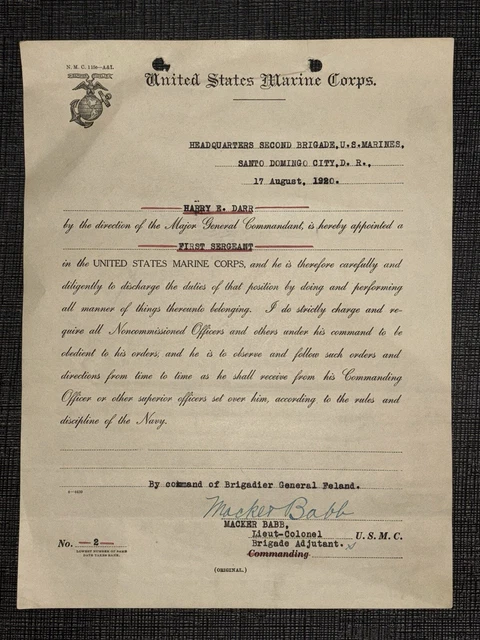 N. M. C. 116e—A&I.
United States Marine Corps.
HEADQUARTERS SECOND BRIGADE,U.S.MARINES,
SANTO DOMINGO CITY,D. R.,
17 August, 1920.
HARRY E. DARR
by the direction of the Major General Commandant, is hereby appointed a
FIRST SERGEANT
in the UNITED STATES MARINE CORPS, and he is therefore carefully and
diligently to discharge the duties of that position by doing and performing
all manner of things thereunto belonging. I do strictly charge and re-
quire all Noncommissioned Officers and others under his command to be
obedient to his orders, and he is to observe and follow such orders and
directions from time to time as he shall receive from his Commanding
Officer or other superior officers set over him, according to the rules and
discipline of the Navy.
By command of Brigadier General Feland.
Macker Babb
MACKER BABB,
Lieut-Colonel U. S. M. C.
Brigade Adjutant.
Commanding
No. 2
LOWEST NUMBER OF SAME
DATE TAKES RANK.
(ORIGINAL.)